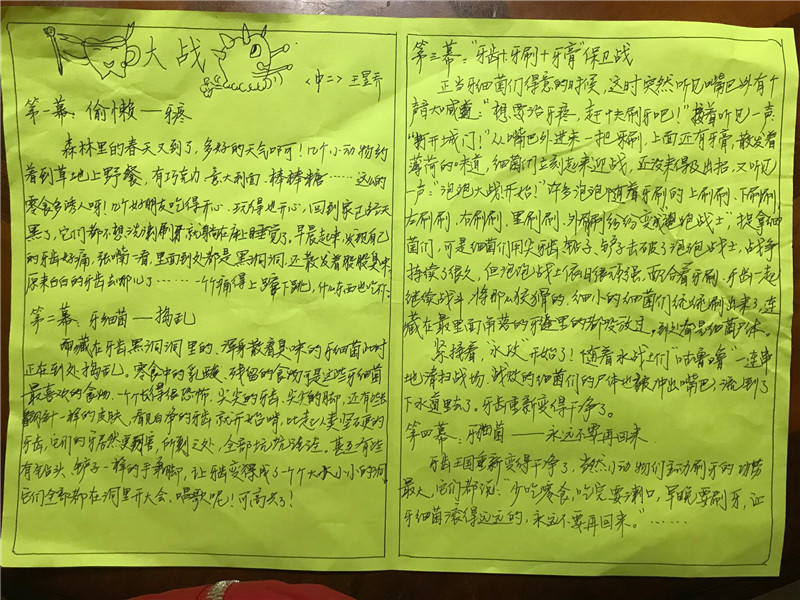 大战
<中二> 王星齐
第一幕：偷懒——牙疼
森林里的春天又到了，多好的天气啊可！几个小动物约
着到草地上野餐，有巧克力、意大利面、棒棒糖……这么的
零食多诱人呀！几个好朋友吃得开心、玩得也开心，回到家已经天
黑了，它们都不想洗漱刷牙就躺在床上睡觉了。早晨起来，发现自己
的牙齿好痛，张嘴一看，里面到处都是黑洞洞，还散发着股股臭味。
原来白白的牙齿去哪儿了……一个个痛得上蹿下跳，什么东西也吃不
第二幕：牙细菌——捣乱
而藏在牙齿黑洞洞里的、浑身散着臭味的牙细菌此时
正在到处捣乱。零食中的乳酸、残留的食物可是这些牙细菌
最喜欢的食物。一个个长得很恐怖，尖尖的牙齿、尖尖的脚，还有些
一样的皮肤，看见白净的牙齿就开始啃，比起人类坚硬的
牙齿，它们的牙居然更厉害，所到之处，全部坑坑洼洼，甚至有些
有钻头、铲子一样的手和脚，让牙齿变得成了一个个大大小小的洞，
它们全部都在洞里开大会、唱歌呢！可高兴了！
第三幕：“牙齿+牙刷+牙膏”保卫战
正当牙细菌们得意的时候，这时突然听见嘴巴外有个
声音大喊道：“想要治牙疼，赶快去刷牙吧！”接着听见一声：
“打开城门！”从嘴巴外进来一把牙刷，上面还有牙膏，散发着
薄荷的味道，细菌们立刻起来迎战，还没来得及出招，又听见
一声：“泡泡大战开始！”许多泡泡随着牙刷的上刷刷、下刷刷、
左刷刷、右刷刷、里刷刷、外刷刷纷纷变成“泡泡战士”捉拿细
菌们，可是细菌们用尖牙齿、钻子、铲子去破了泡泡战士，战争
持续了很久，但泡泡战士依旧继续强，配合着牙刷、牙齿一起
继续战斗，将那狡猾的、细小的细菌们统统刷出来了，连
藏在最里面角落的牙缝里的都没放过，到处都是细菌尸体。
紧接着，“水攻”开始了！随着水战士们“咕噜噜”一连串
地清扫战场，战败的细菌们的尸体也被冲出嘴巴，流到了
下水道里去了。牙齿重新变得干净了。
第四幕：牙细菌——永远不要再回来
牙齿王国重新变得干净了，当然小动物们主动刷牙的功劳
最大，它们都说：“少吃零食，吃完要漱口，早晚要刷牙，让
牙细菌滚得远远的，永远不要再回来。”……